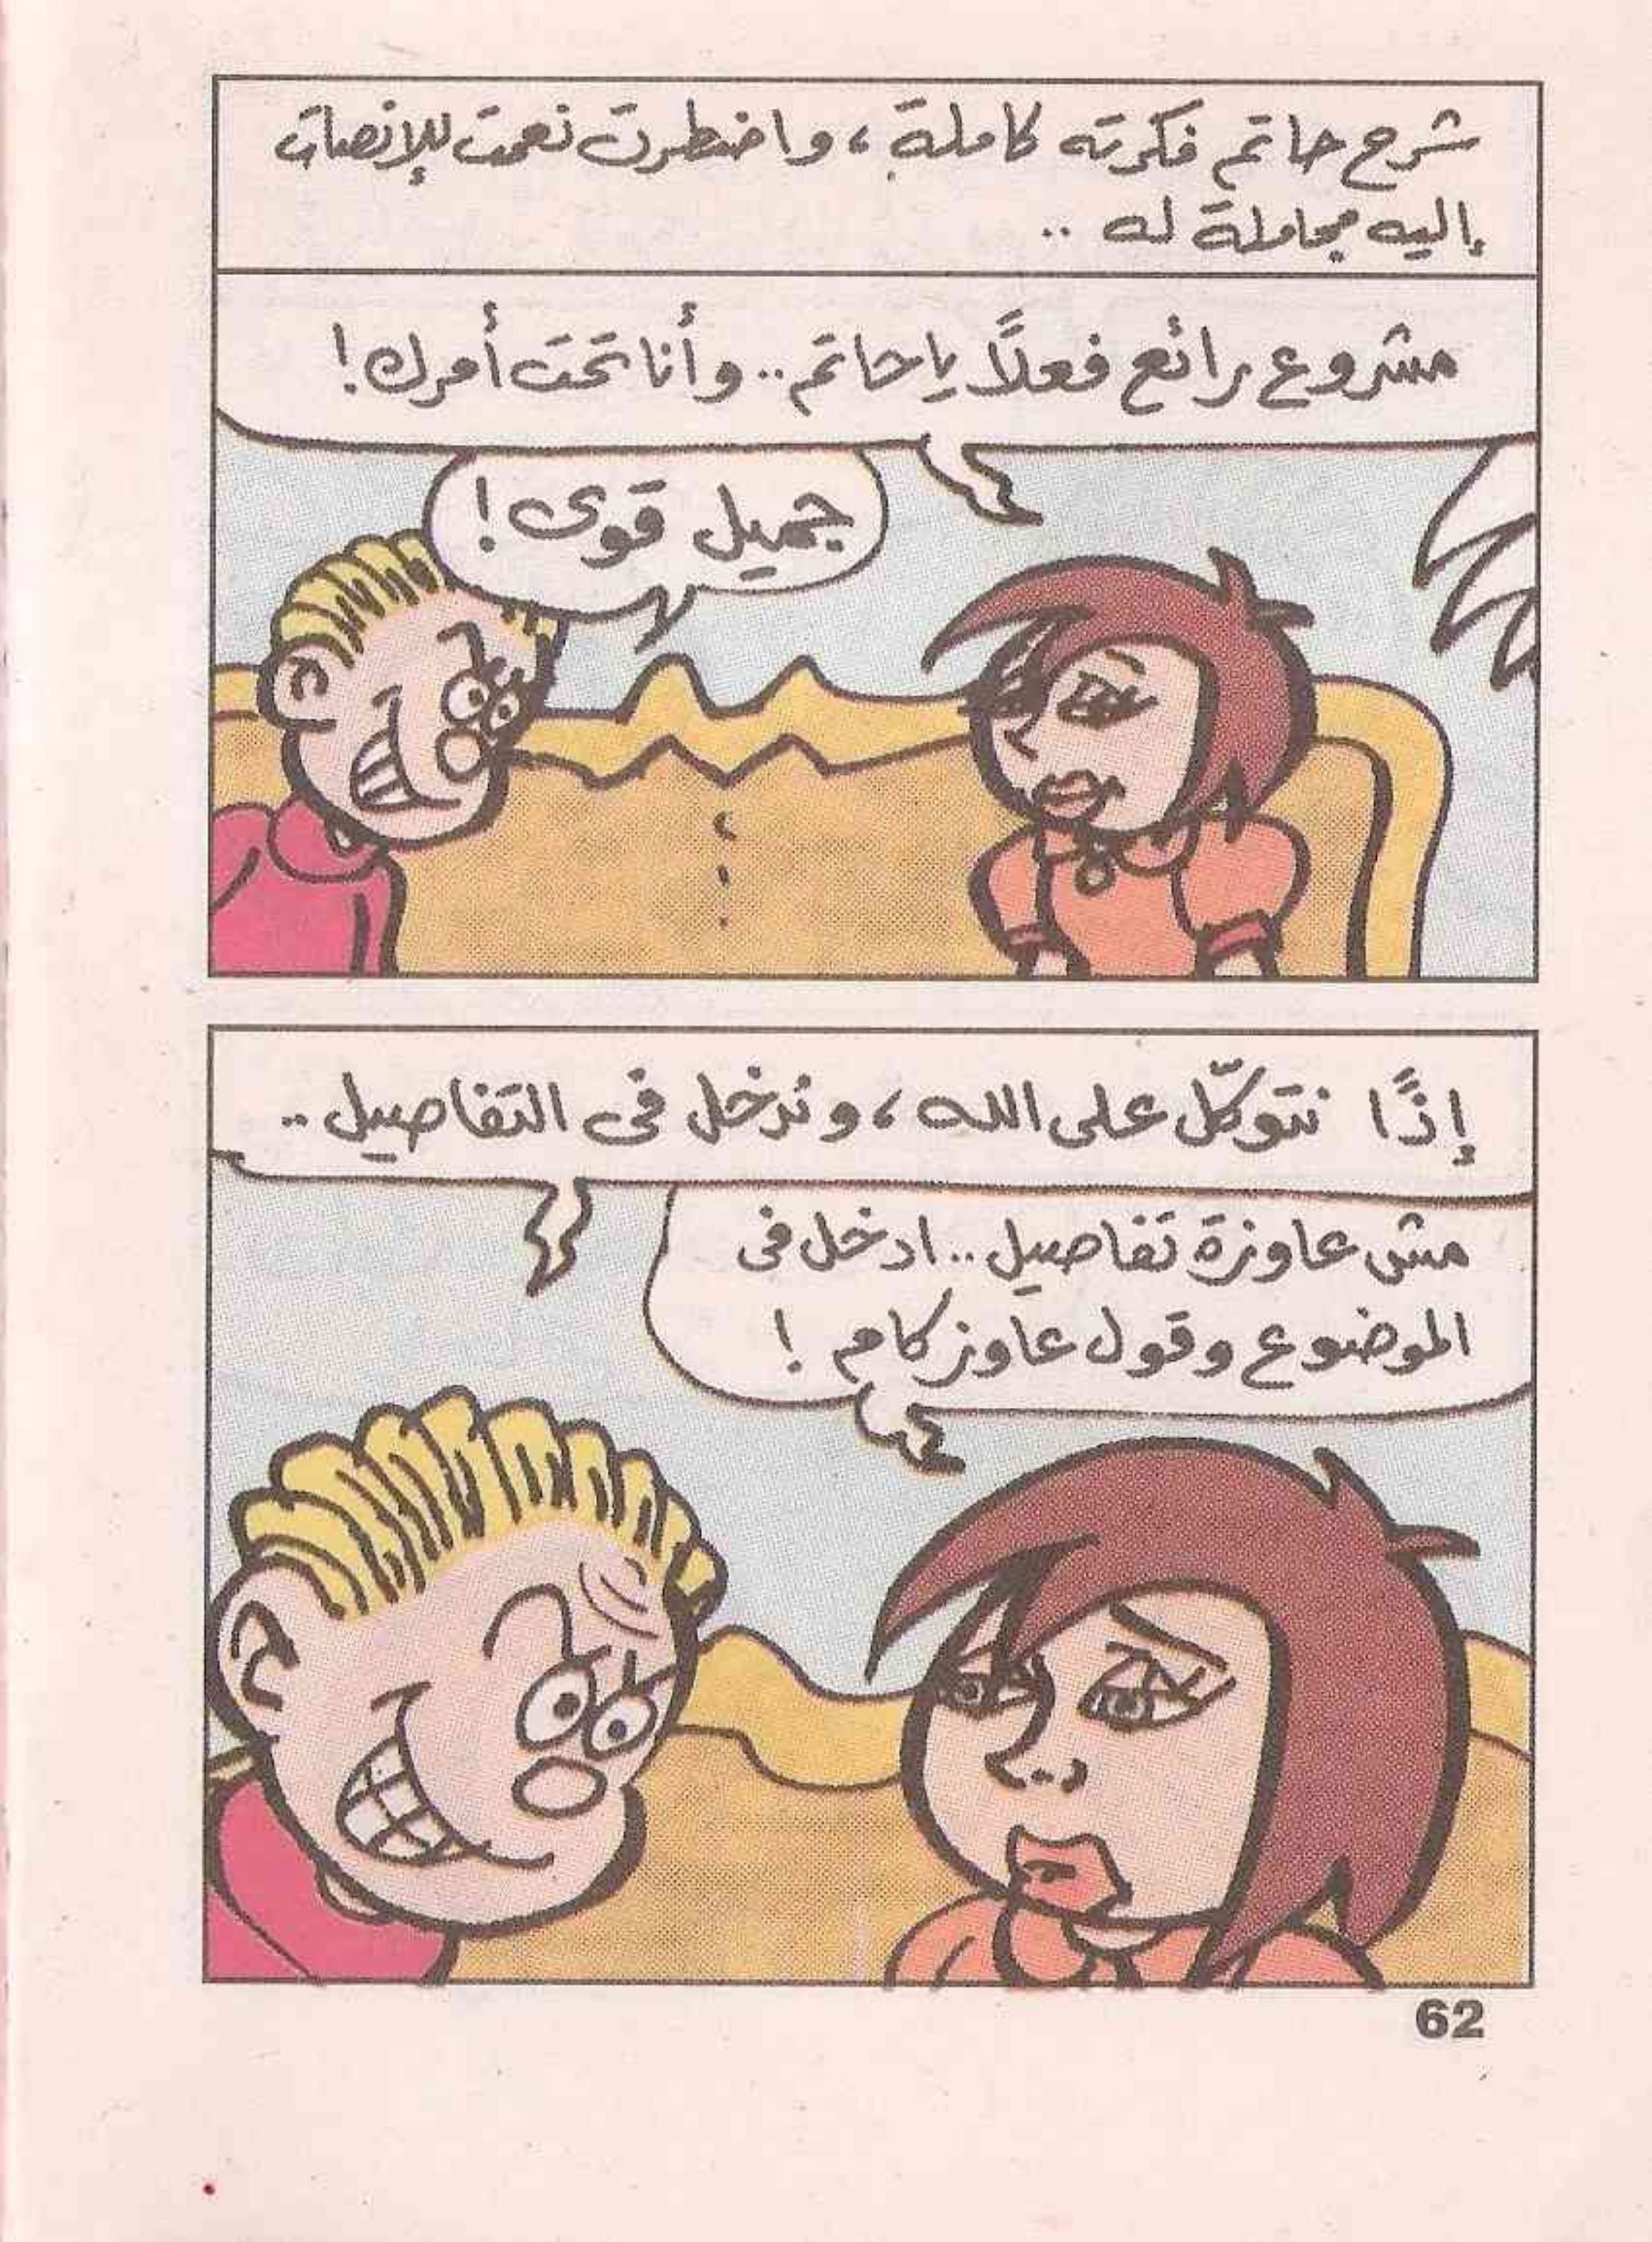 شرح حاتم فكرته كاملة ، واضطرت نعمت للإنصات
إليه مجاملة له ..
مشروع رائع فعلًا يا حاتم .. وأنا تحت أمرك !
جميل قوى !
إذًا نتوكّل على الله ، وندخل فى التفاصيل ..
مش عاوزة تفاصيل .. ادخل فى
الموضوع وقول عاوز كام !
62